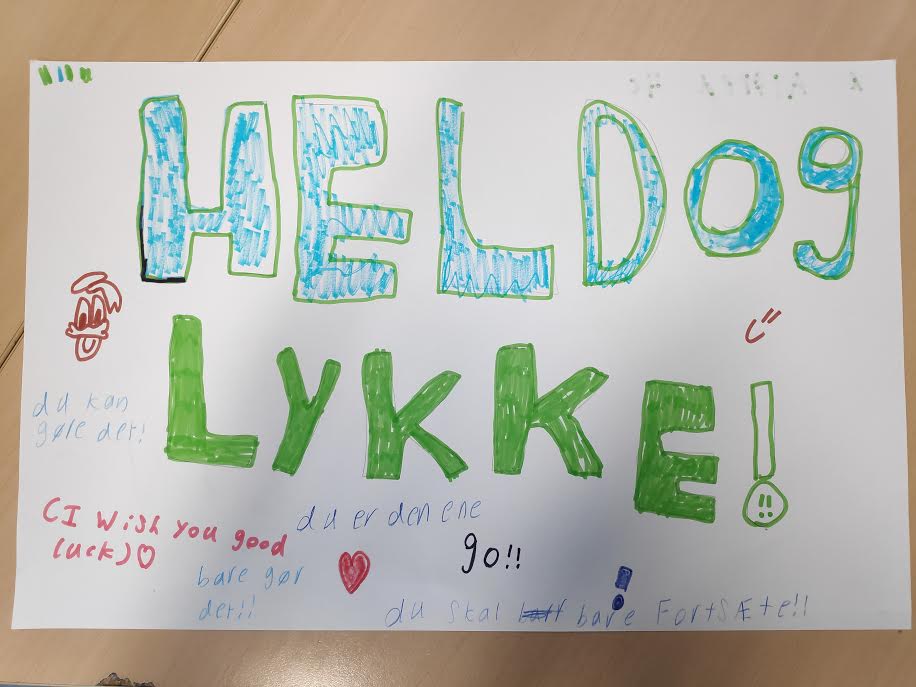 HELD og
LYKKE!
du kan
gøre det!
(I wish you good
luck)
du er den ene
go!!
bare gør
det!!
du skal bare FortsÆte!!